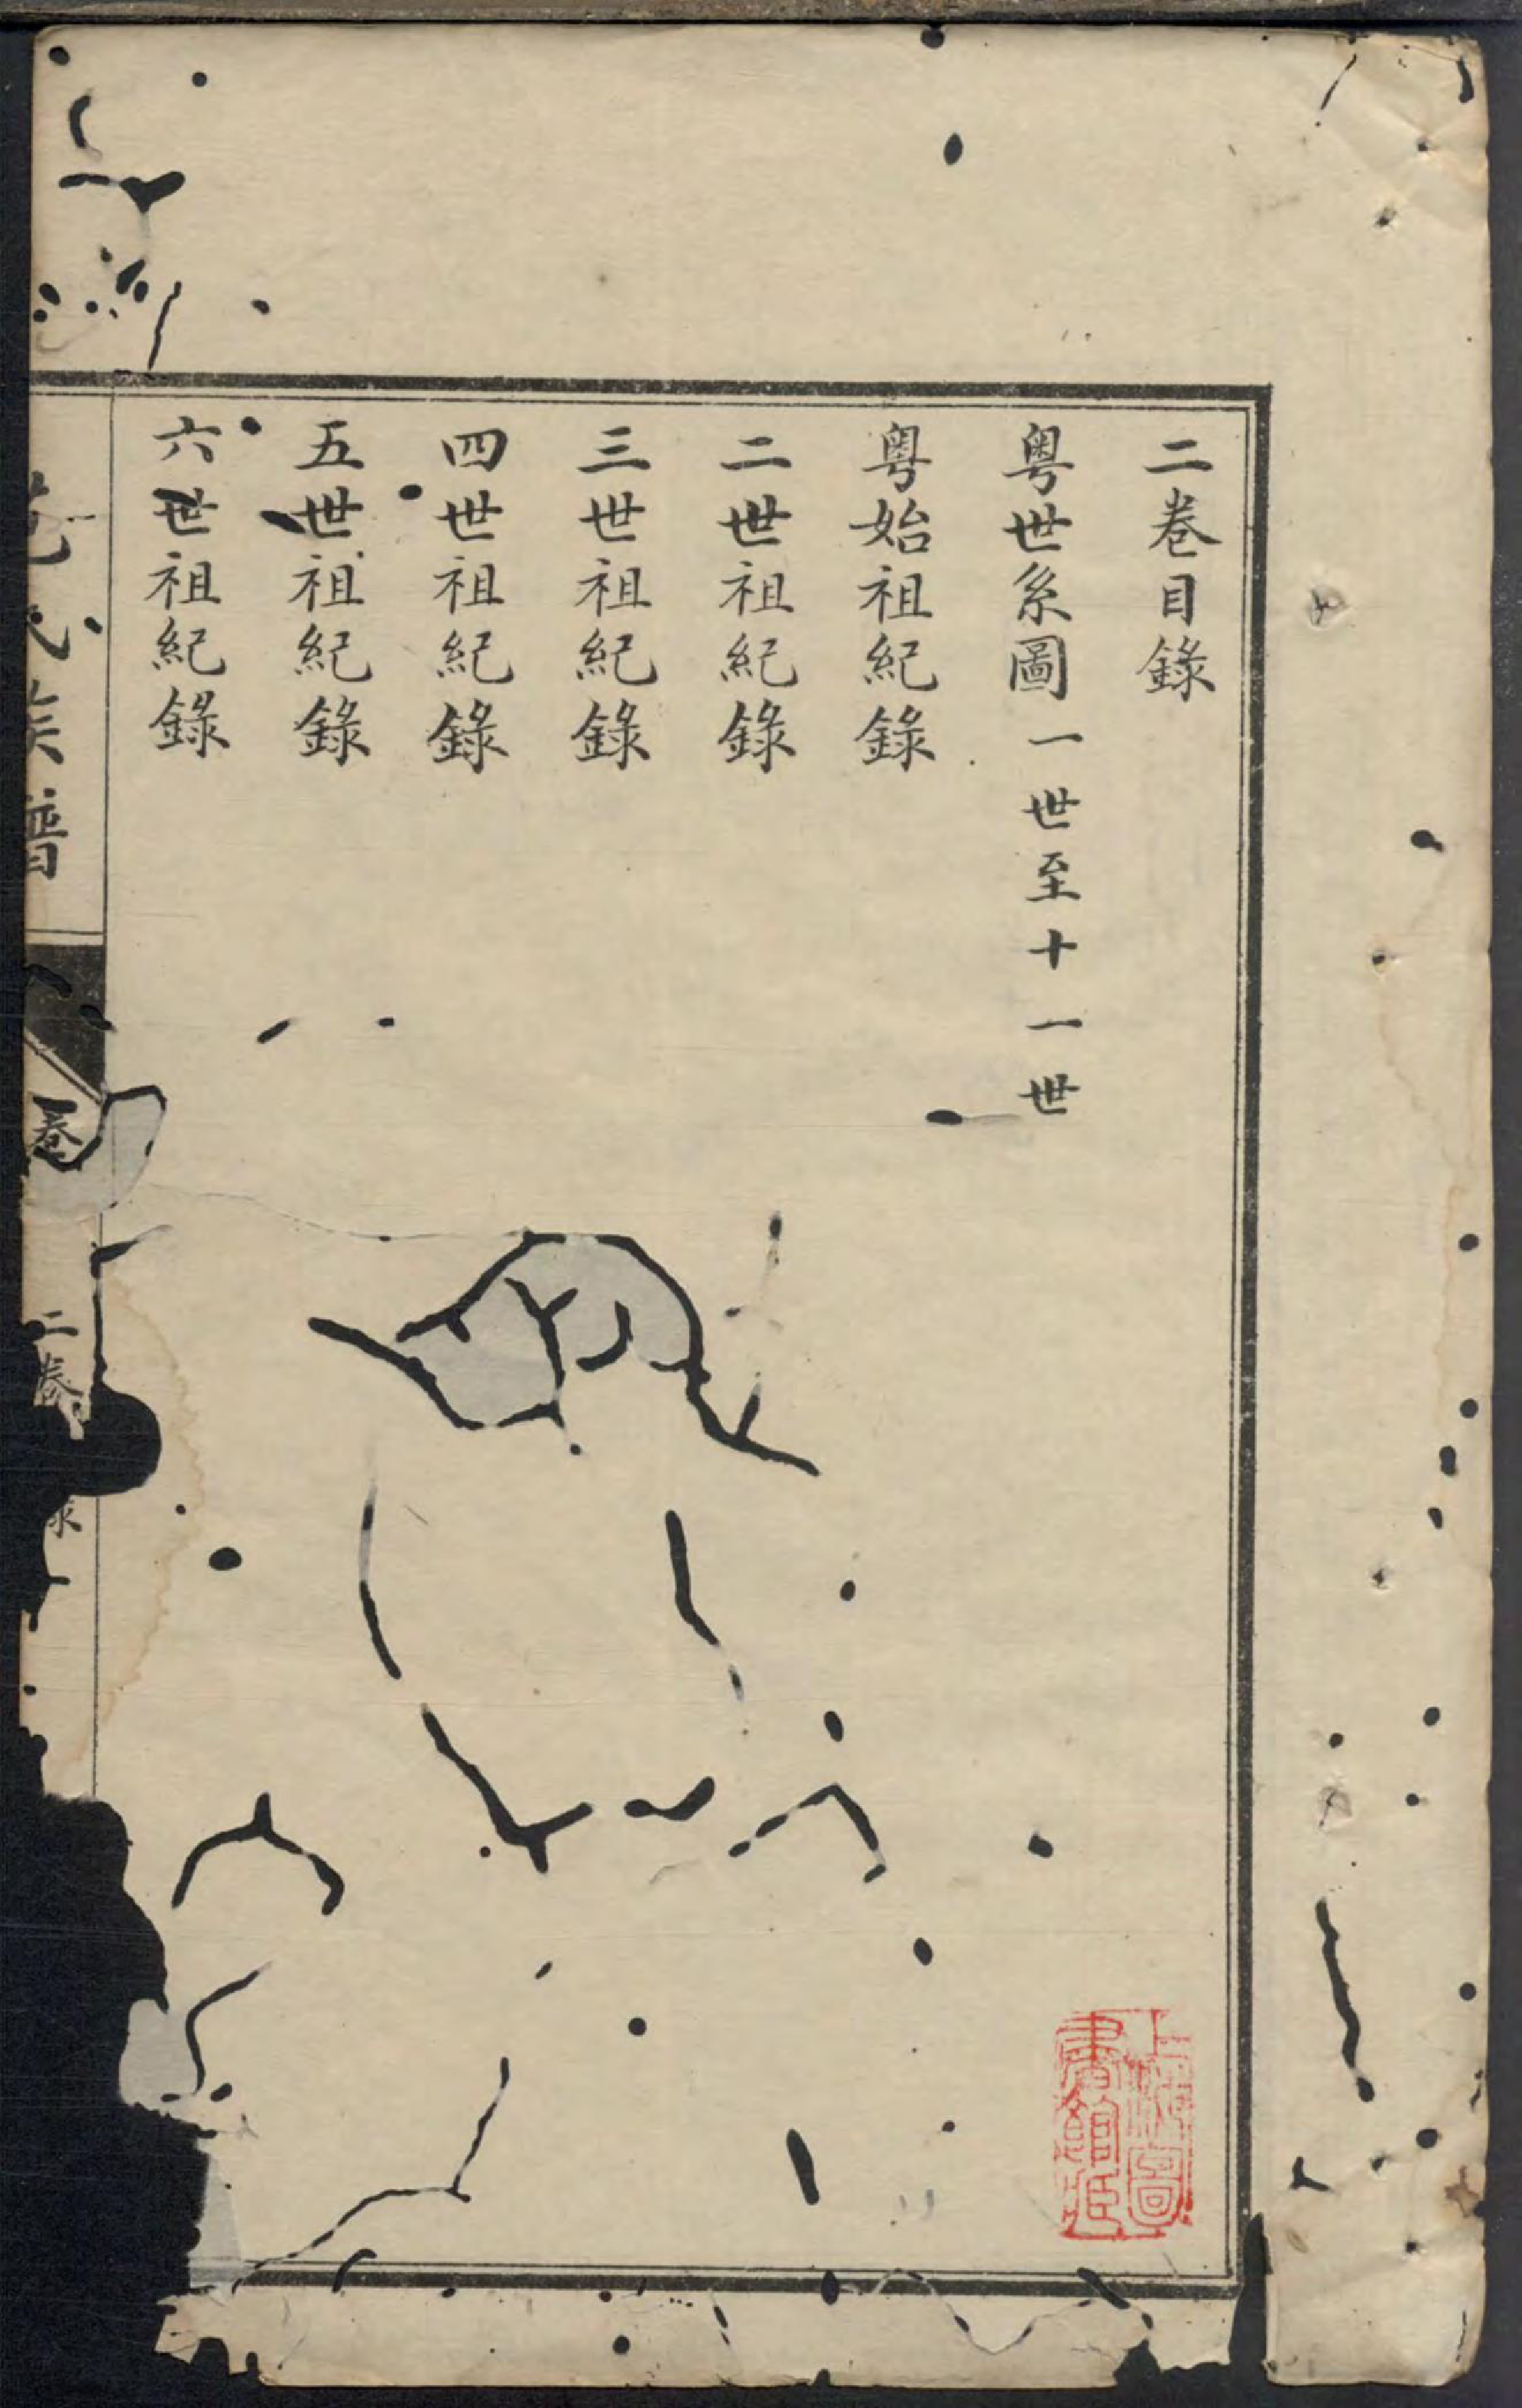 二卷目錄
粵世系圖一世至十一世
粵始祖紀錄
二世祖紀錄
三世祖紀錄
四世祖紀錄
五世祖紀錄
六世祖紀錄
氏族譜
卷
二卷
上海圖書館藏